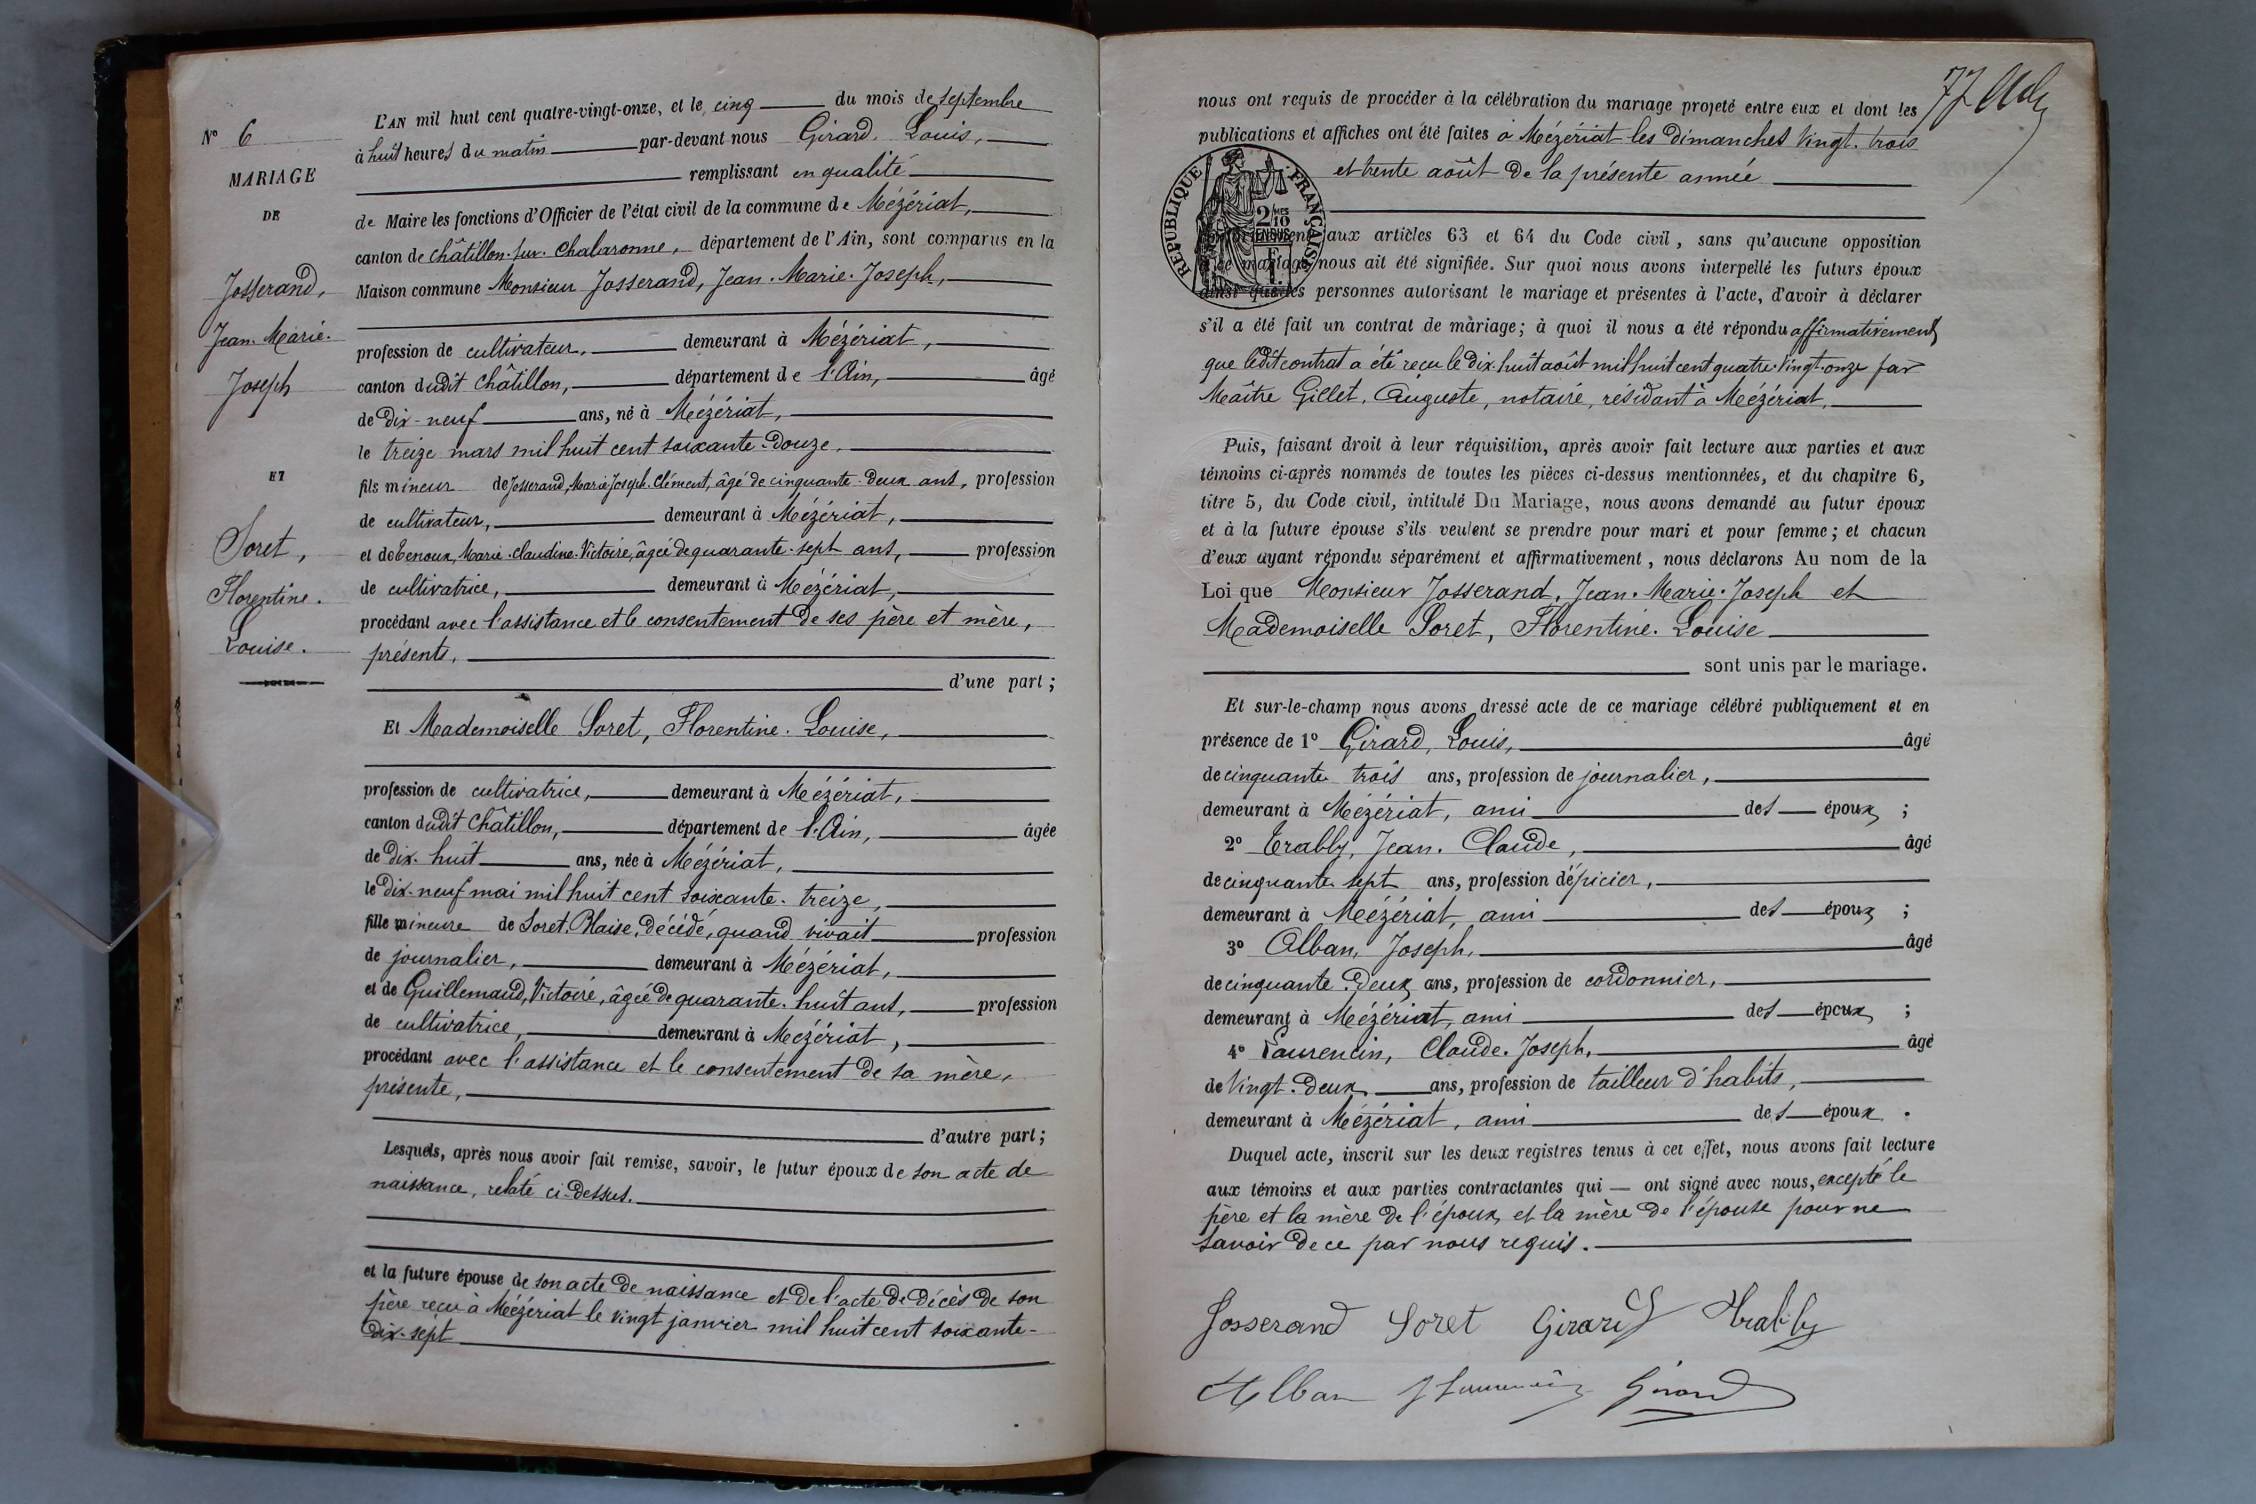 N° 6
MARIAGE
DE
Josserand,
Jean-Marie-
Joseph
ET
Soret,
Florentine-
Louise.
L'AN mil huit cent quatre-vingt-onze, et le cinq du mois de septembre
à huit heures du matin par-devant nous Girard, Louis,
remplissant en qualité
de Maire les fonctions d'Officier de l'état civil de la commune de Mézériat,
canton de châtillon-sur-Chalaronne, département de l'Ain, sont comparus en la
Maison commune Monsieur Josserand, Jean-Marie-Joseph,
profession de cultivateur, demeurant à Mézériat,
canton dudit Châtillon, département de l'Ain, âgé
de dix-neuf ans, né à Mézériat,
le treize mars mil huit cent soixante-douze,
fils mineur de Josserand, Marie-Joseph-Clément, âgé de cinquante-deux ans, profession
de cultivateur, demeurant à Mézériat,
et de Tenoux, Marie-Claudine-Victoire, âgée de quarante-sept ans, profession
de cultivatrice, demeurant à Mézériat,
procédant avec l'assistance et le consentement de ses père et mère,
présents,
d'une part;
Et Mademoiselle Soret, Florentine-Louise,
profession de cultivatrice, demeurant à Mézériat,
canton dudit Châtillon, département de l'Ain, âgée
de dix-huit ans, née à Mézériat,
le dix-neuf mai mil huit cent soixante-treize,
fille mineure de Soret, Blaise, décédé, quand vivait profession
de journalier, demeurant à Mézériat,
et de Guillemaud, Victoire, âgée de quarante-huit ans, profession
de cultivatrice, demeurant à Mézériat,
procédant avec l'assistance et le consentement de sa mère,
présente,
d'autre part;
Lesquels, après nous avoir fait remise, savoir, le futur époux de son acte de
naissance, relaté ci-dessus.
et la future épouse de son acte de naissance et de l'acte de décès de son
père reçu à Mézériat le vingt janvier mil huit cent soixante-
dix-sept
77
nous ont requis de procéder à la célébration du mariage projeté entre eux et dont les
publications et affiches ont été faites à Mézériat les dimanches vingt-trois
et trente août de la présente année
RÉPUBLIQUE FRANÇAISE
2/10
EN SUS
aux articles 63 et 64 du Code civil, sans qu'aucune opposition
à ce mariage nous ait été signifiée. Sur quoi nous avons interpellé les futurs époux
ainsi que les personnes autorisant le mariage et présentes à l'acte, d'avoir à déclarer
s'il a été fait un contrat de mariage; à quoi il nous a été répondu affirmativement
que ledit contrat a été reçu le dix-huit août mil huit cent quatre-vingt-onze par
Maître Gillet, Auguste, notaire, résidant à Mézériat,
Puis, faisant droit à leur réquisition, après avoir fait lecture aux parties et aux
témoins ci-après nommés de toutes les pièces ci-dessus mentionnées, et du chapitre 6,
titre 5, du Code civil, intitulé Du Mariage, nous avons demandé au futur époux
et à la future épouse s'ils veulent se prendre pour mari et pour femme; et chacun
d'eux ayant répondu séparément et affirmativement, nous déclarons Au nom de la
Loi que Monsieur Josserand, Jean-Marie-Joseph et
Mademoiselle Soret, Florentine-Louise
sont unis par le mariage.
Et sur-le-champ nous avons dressé acte de ce mariage célébré publiquement et en
présence de 1° Girard, Louis, âgé
de cinquante-trois ans, profession de journalier,
demeurant à Mézériat, ami des époux;
2° Trably, Jean-Claude, âgé
de cinquante-sept ans, profession d'épicier,
demeurant à Mézériat, ami des époux;
3° Alban, Joseph, âgé
de cinquante-deux ans, profession de cordonnier,
demeurant à Mézériat, ami des époux;
4° Laurencin, Claude-Joseph, âgé
de vingt-deux ans, profession de tailleur d'habits,
demeurant à Mézériat, ami des époux.
Duquel acte, inscrit sur les deux registres tenus à cet effet, nous avons fait lecture
aux témoins et aux parties contractantes qui — ont signé avec nous, excepté le
père et la mère de l'époux, et la mère de l'épouse pour ne
savoir de ce par nous requis.
Josserand Soret Girard Trably
Alban Girard